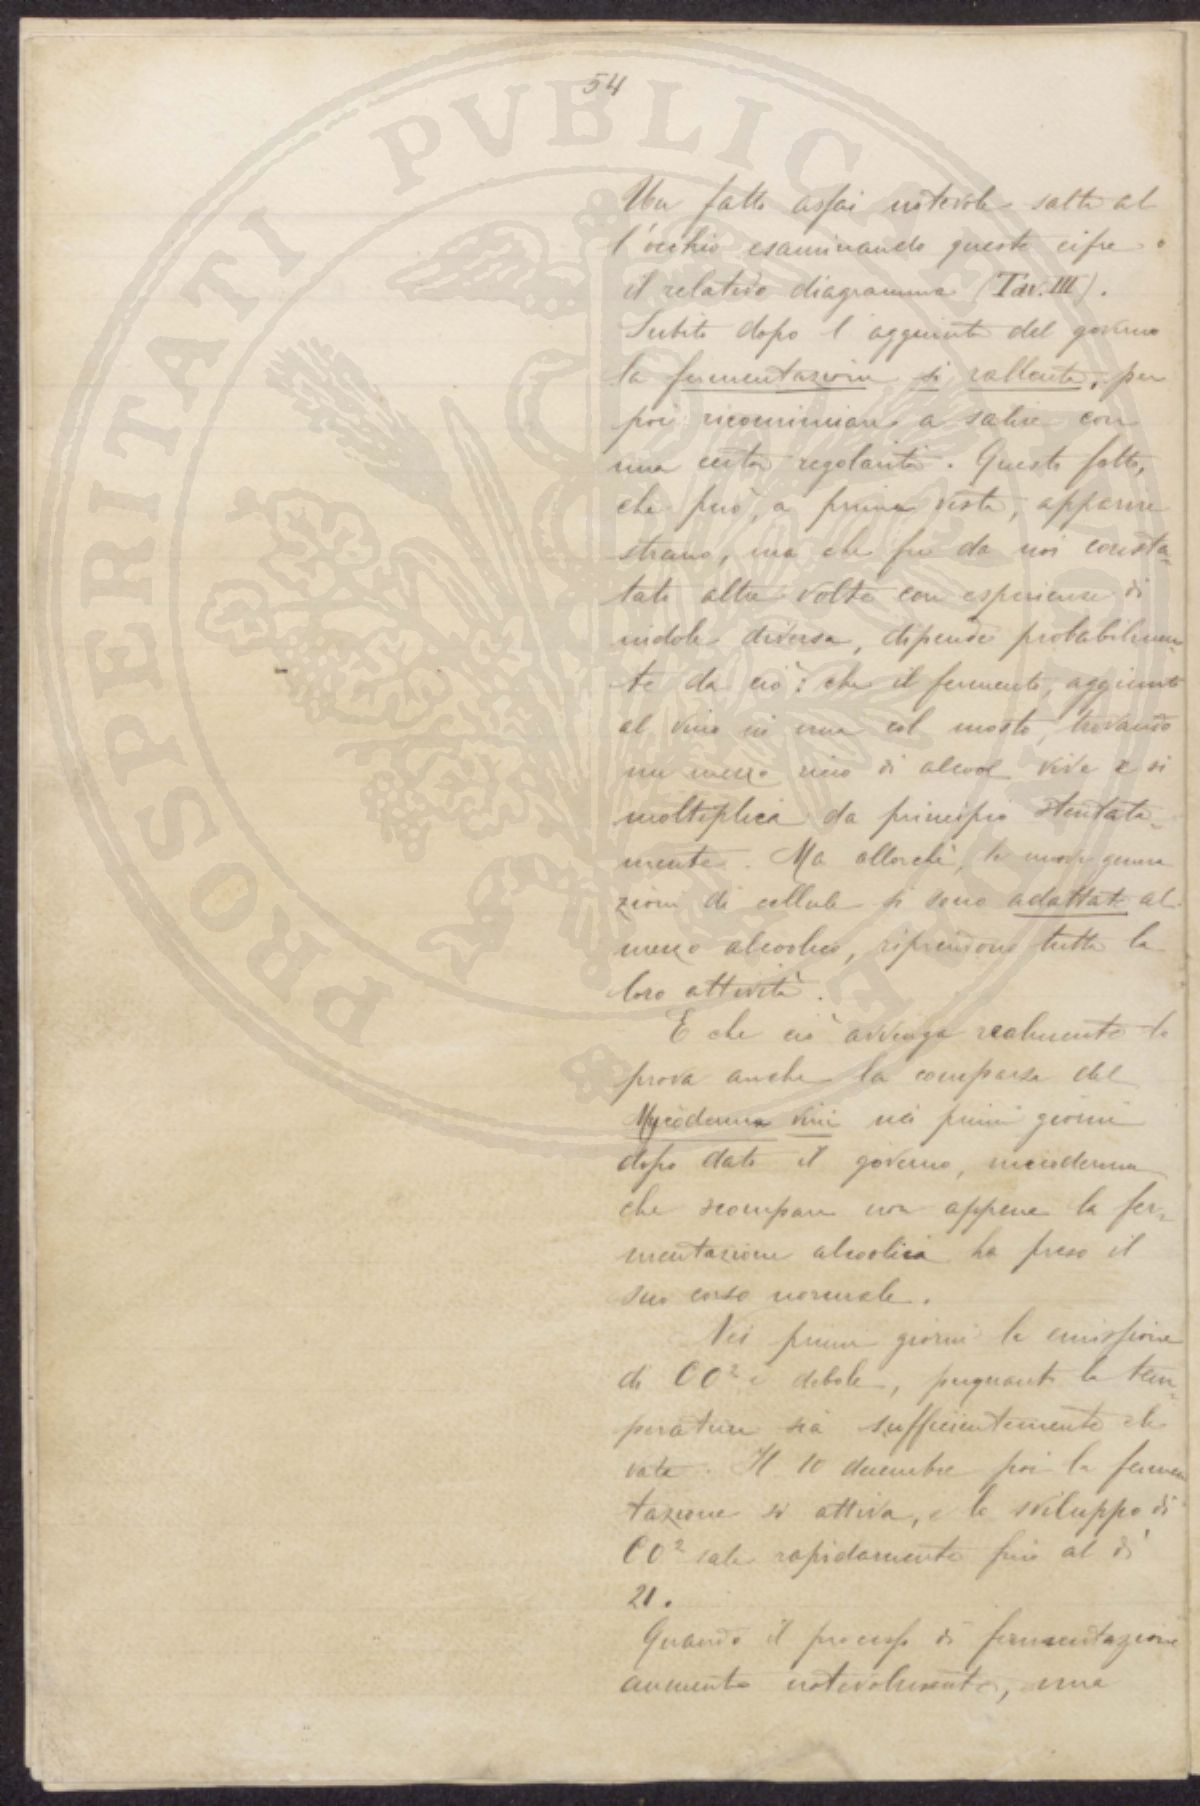 54
Un fatto assai notevole salta al
l'occhio esaminando queste cifre e
il relativo diagramma (Tav. III).
Subito dopo l'aggiunta del governo
la fermentazione si rallenta, per
poi ricominciare a salire con
una certa regolarità. Questo fatto,
che può, a prima vista, apparire
strano, ma che fu da noi consta-
tato altre volte con esperienze di
indole diversa, dipende probabilmen-
te da ciò: che il fermento, aggiunto
al vino in una col mosto, trovando
un mezzo ricco di alcool vive e si
moltiplica da principio stentata-
mente. Ma allorchè, le nuove genera
zioni di cellule si sono adattate al
mezzo alcoolico, riprendono tutta la
loro attività.
E che ciò avvenga realmente lo
prova anche la comparsa del
Mycoderma vini nei primi giorni
dopo dato il governo, micoderma
che scompare non appena la fer-
mentazione alcoolica ha preso il
suo corso normale.
Nei primi giorni la emissione
di CO² è debole, perquanto la tem-
peratura sia sufficientemente ele
vata. Il 10 decembre poi la fermen
tazione si attiva, e lo sviluppo di
CO² sale rapidamente fino al dì
21.
Quando il processo di fermentazione
aumenta notevolmente, una
PROSPERITATI PVBLICAE